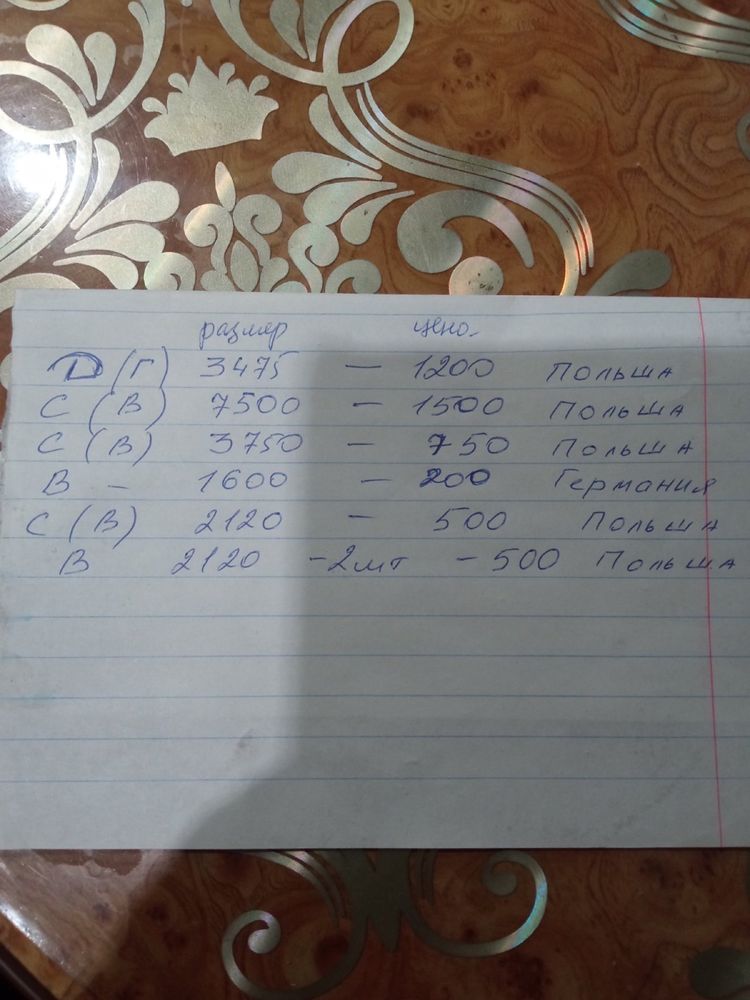 размер цена
D (Г) 3475 — 1200 Польша
С (В) 7500 — 1500 Польша
С (В) 3750 — 750 Польша
В — 1600 — 200 Германия
С (В) 2120 — 500 Польша
В 2120 - 2шт - 500 Польша